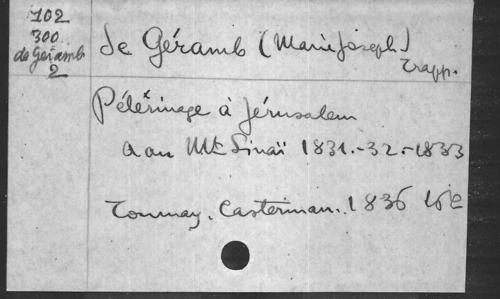 102
300
de Geramb
2
de Géramb (Marie Joseph)
Trapp.
Pélérinage à Jérusalem
& au Mt Sinaï 1831.-32.-1833
Tournay. Casterman. 1836 16e